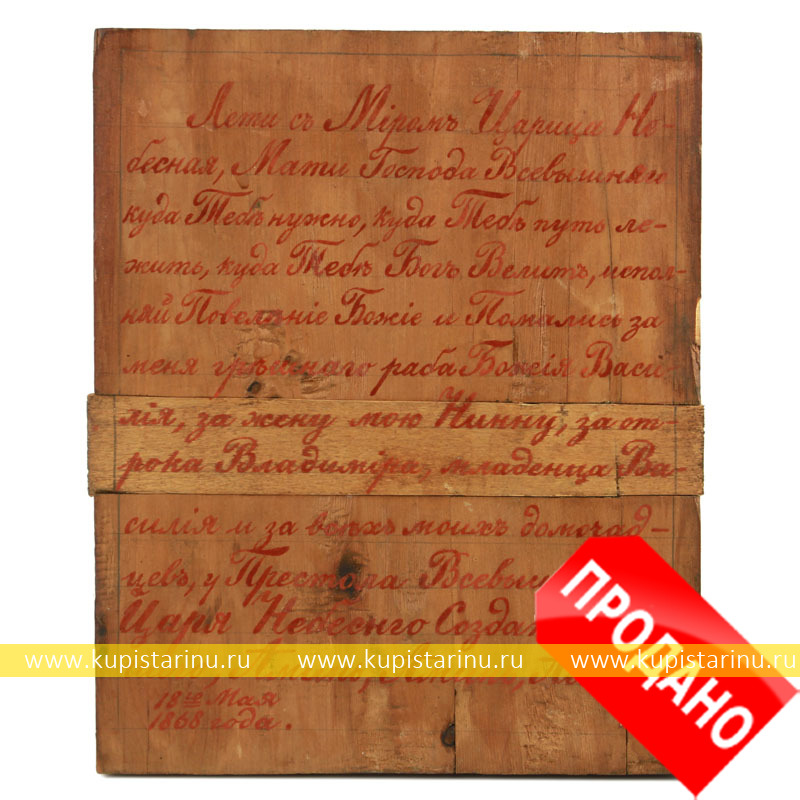 Лети съ Міромъ Царица Не-
бесная, Мати Господа Всевышняго
куда Тебѣ нужно, куда Тебѣ путь ле-
житъ, куда Тебѣ Богъ Велитъ, испол-
няй Повелѣніе Божіе и Помались за
меня грѣшнаго раба Божія Васи-
лія, за жену мою Нинну, за от-
рока Владиміра, младенца Ва-
силія и за всѣхъ моихъ домочад-
цевъ, у Престола
Царя Небеснго
www.kupistarinu.ru www.kupistarinu.ru www.kupistarinu.ru
18го Мая
1868 года.
ПРОДАНО